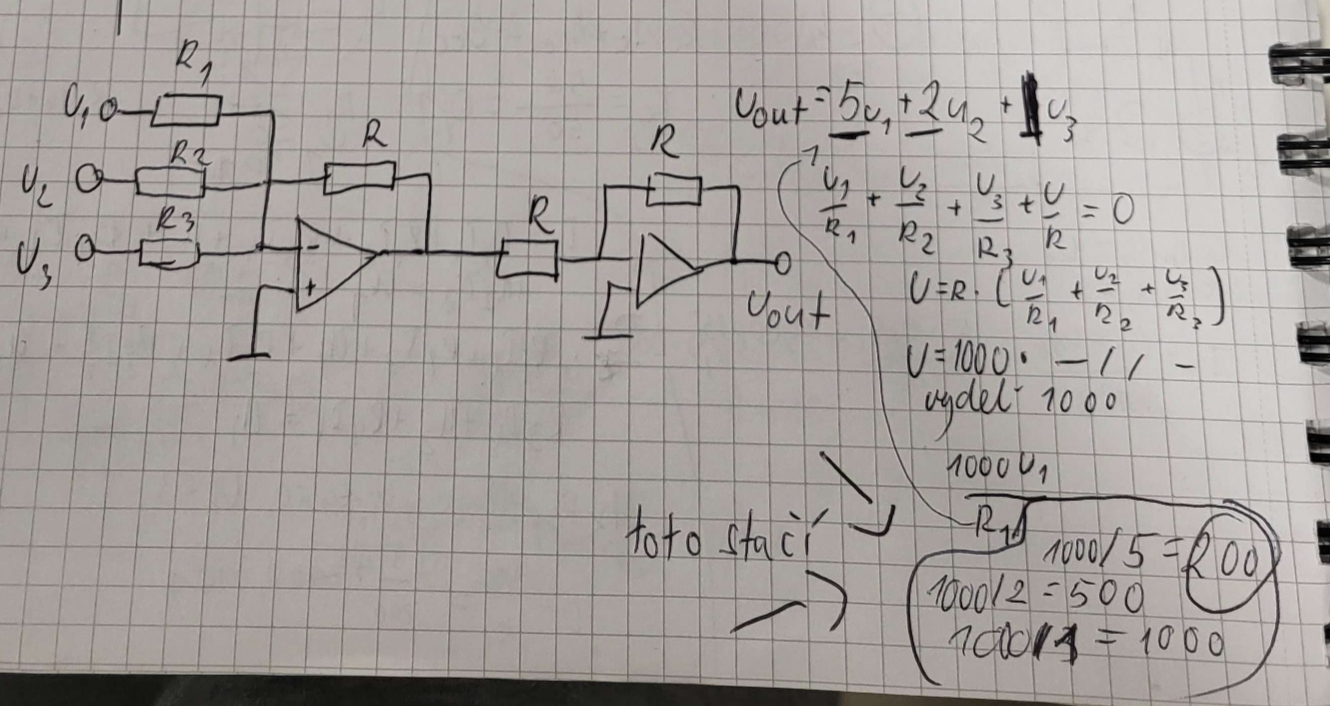 R1
U1
R2
R
R
U2
R3
R
U3
-
+
Uout
Uout = 5U1 + 2U2 + 1U3
U1/R1 + U2/R2 + U3/R3 + U/R = 0
U = R · (U1/R1 + U2/R2 + U3/R3)
U = 1000 · — // —
vydel 1000
1000U1
R1
toto stačí
1000/5 = 200
1000/2 = 500
1000/1 = 1000